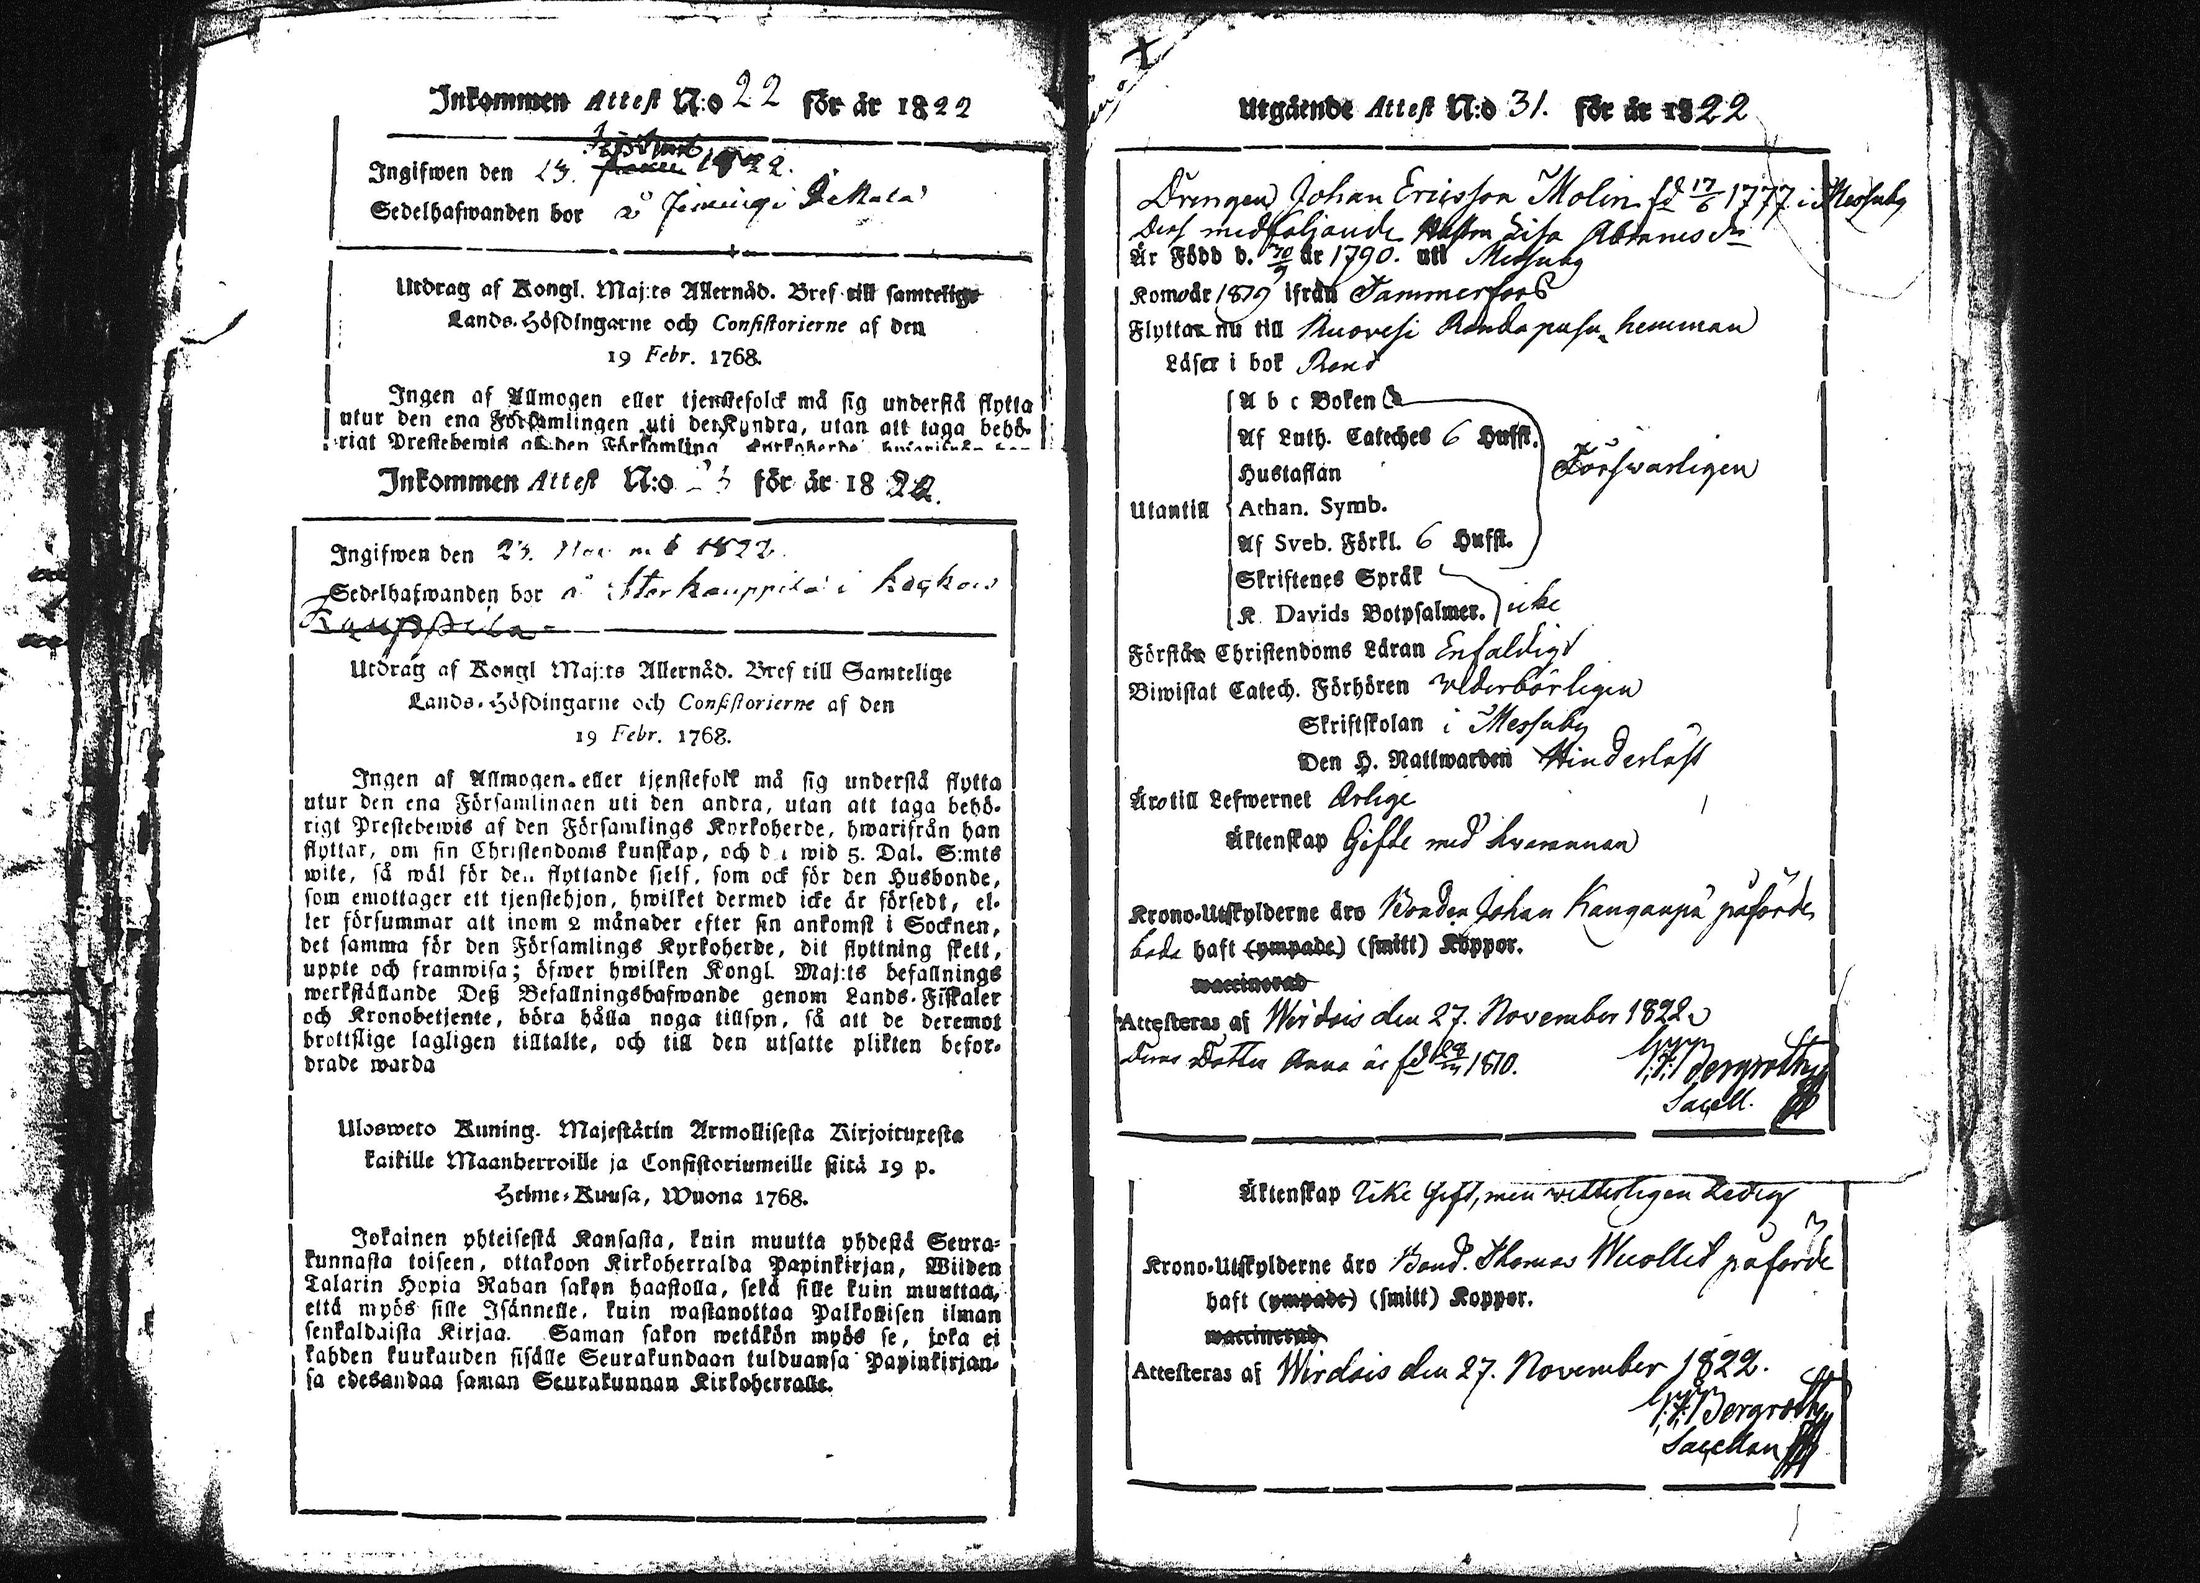 Inkommen Attest N:o 22 för år 1822
Ingifwen den 23. 1822.
Sedelhafwanden bor å
Utdrag af Kongl. Maj:ts Allernåd. Bref till samtelige
Lands-Höfdingarne och Consistorierne af den
19 Febr. 1768.
Ingen af Allmogen eller tjenstefolck må sig understå flytta
utur den ena Församlingen uti den andra, utan att taga behö-
rigt Prestebewis af den Församling Kyrkoherde hwarifrån han
Inkommen Attest N:o 23 för år 1822.
Ingifwen den 23. 1822.
Sedelhafwanden bor å Storkauppila i
Kauppila
Utdrag af Kongl Maj:ts Allernåd. Bref till Samtelige
Lands-Höfdingarne och Consistorierne af den
19 Febr. 1768.
Ingen af Allmogen eller tjenstefolk må sig understå flytta
utur den ena Församlingen uti den andra, utan att taga behö-
rigt Prestebewis af den Församlings Kyrkoherde, hwarifrån han
flyttar, om sin Christendoms kunskap, och det wid 5. Dal. S:mts
wite, så wäl för den flyttande sjelf, som ock för den Husbonde,
som emottager ett tjenstehjon, hwilket dermed icke är försedt, el-
ler försummar att inom 2 månader efter sin ankomst i Socknen,
det samma för den Församlings Kyrkoherde, dit flyttning skett,
uppte och framwisa; öfwer hwilken Kongl. Maj:ts befallnings
werkställande Deß Befallningshafwande genom Lands-Fiskaler
och Kronobetjente, böra hålla noga tillsyn, så att de deremot
brottslige lagligen tilltalte, och till den utsatte plikten befor-
drade warda
Ulosweto Kuning. Majestätin Armollisesta Kirjoituxesta
kaikille Maanherroille ja Consistoriumeille siitä 19 p.
Helme-Kuusa, Wuona 1768.
Jokainen yhteisestä Kansasta, kuin muutta yhdestä Seura-
kunnasta toiseen, ottakoon Kirkoherralda Papinkirjan, Wiiden
Talarin Hopia Rahan sakon haastolla, sekä sille kuin muuttaa,
että myös sille Isännelle, kuin wastanottaa Palkollisen ilman
senkaldaista Kirjaa. Saman sakon wetäkön myös se, joka ei
kahden kuukauden sisälle Seurakundaan tulduansa Papinkirjan-
sa edesandaa saman Seurakunnan Kirkoherralle.
Utgående Attest N:o 31. för år 1822
Drengen Johan Ericsson Molin fd 17/6 1777 i Messuby
Dess medföljande Hustru Lisa Abramsdr
Är Född d. 30/9 år 1790. uti Messuby
Kom år 1819 ifrån Tammerfors
Flyttar nu till Ruovesi hemman
Läser i bok Rent
Utantill
A b c Boken
Af Luth. Cateches 6 Hufst.
Hustaflan
Athan. Symb.
Af Sveb. Förkl. 6 Hufst.
Förswarligen
Skriftenes Språk
K. Davids Botpsalmer. icke
Förstår Christendoms Läran Enfaldigt
Biwistat Catech. Förhören vederbörligen
Skriftskolan i Messuby
Den H. Nattwarden Hinderlöst
Äro till Lefwernet Ärlige
Äktenskap Gifte med hvarannan
Krono-Utskylderne äro Bonden Johan Kangaspä påförde,
bada haft (ympade) (smitt) Koppor.
waccinerad
Attesteras af Wirdois den 27. November 1822.
Deras Dotter Anna är fd 1810.
Bergroth
Sacell.
Äktenskap Icke Gift, men vetterligen Ledig
Krono-Utskylderne äro Bond. Thomas Wuollet påförde
haft (ympade) (smitt) Koppor.
waccinerad
Attesteras af Wirdois den 27. November 1822.
Bergroth
Sacellan